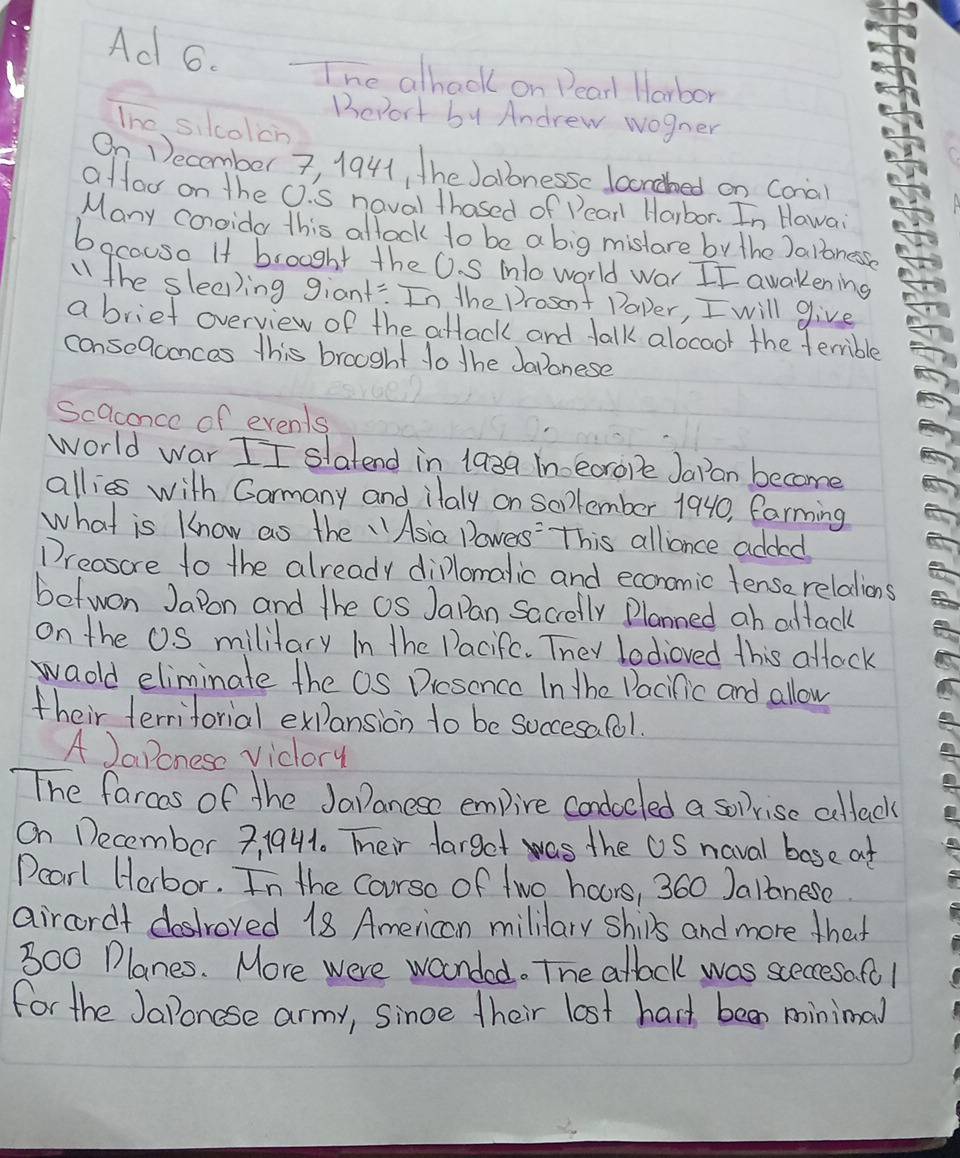 Act 6.
The athack on Pearl Harbor
Report by Andrew wogner
The silcolion
On December 7, 1941, the Japonesse loonched on Conial
attow on the U.S naval thased of Pearl Harbor. In Hawai
Many conoider this attack to be a big mistare by the Japonesse
bacouso It brooght the U.S into world war II awakening
"the sleeping giant". In the Prosent Paper, I will give
a brief overview of the attack and talk alocoot the terrible
conseqoonces this brooght to the Japonese
Scaconce of events
World war II statend in 1939 In eorope Japan become
allies with Garmany and italy on September 1940, farming
what is know as the "Asia Powers" This alliance added
Preasore to the already diplomatic and economic tense relations
betwon Japon and the US Japan Sacretly Planned ah attack
on the US military In the Pacifc. They lodioved this attack
waold eliminate the US Presence In the Pacific and allow
their territorial expansion to be succesafol.
A Japonese victory
The farcos of the Japanese empire condocted a sorprise attack
On December 7,1941. Their target was the US naval base at
Pearl Harbor. In the courso of two hoors, 360 Japanese
aircordt destroyed 18 American military Ships and more that
300 Planes. More were woonded. The attack was succesafol
for the Japonese army, since their lost hart been minimal